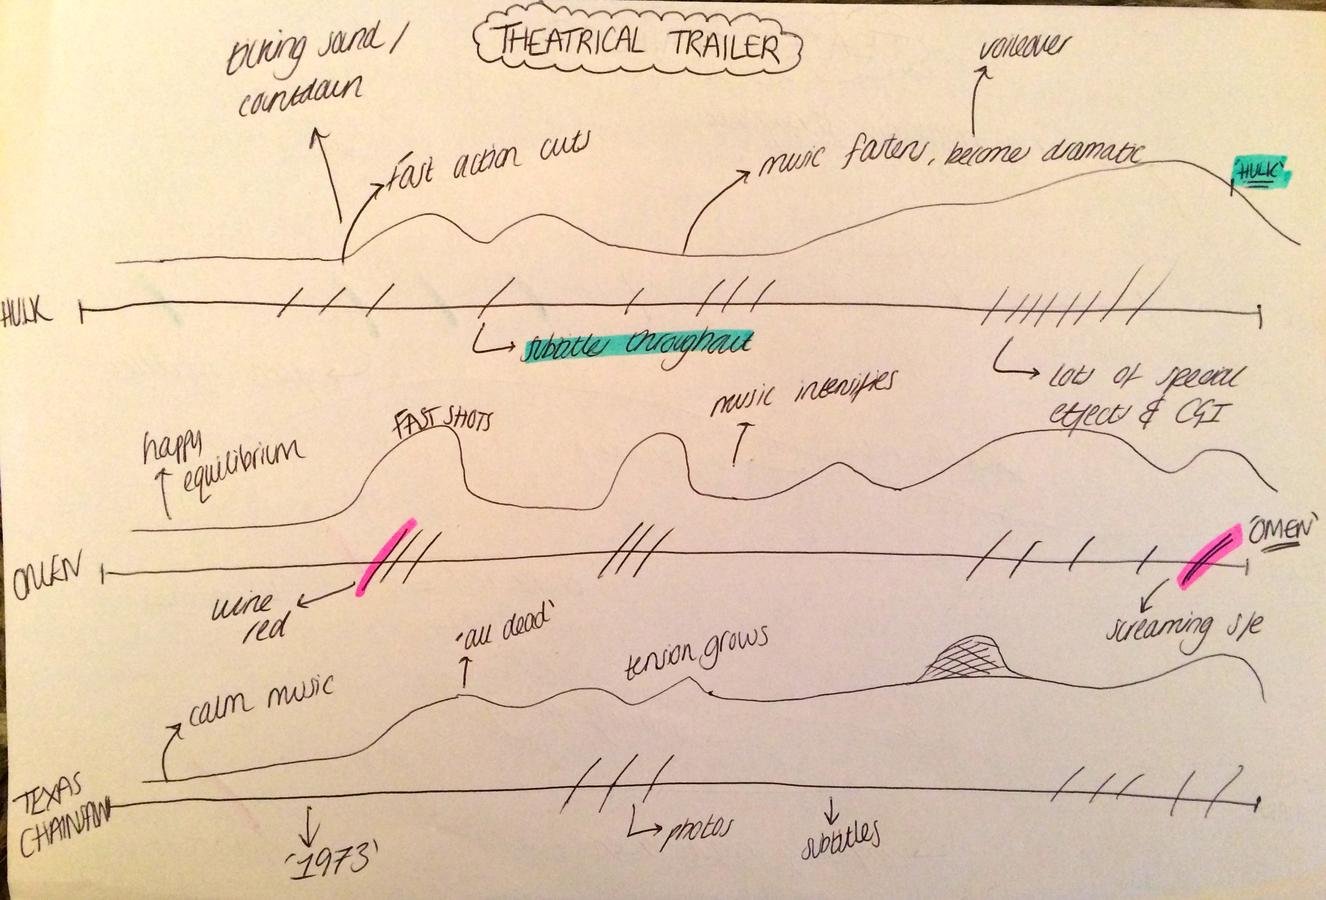 THEATRICAL TRAILER
ticking sound /
countdown
Fast action cuts
voiceover
music fastens, become dramatic
'HULK'
HULK
subtitles throughout
lots of special
effects & CGI
happy
equilibrium
FAST SHOTS
music intensifies
OMEN
'OMEN'
wine
red
screaming s/e
calm music
'all dead'
tension grows
TEXAS
CHAINSAW
'1973'
photos
subtitles